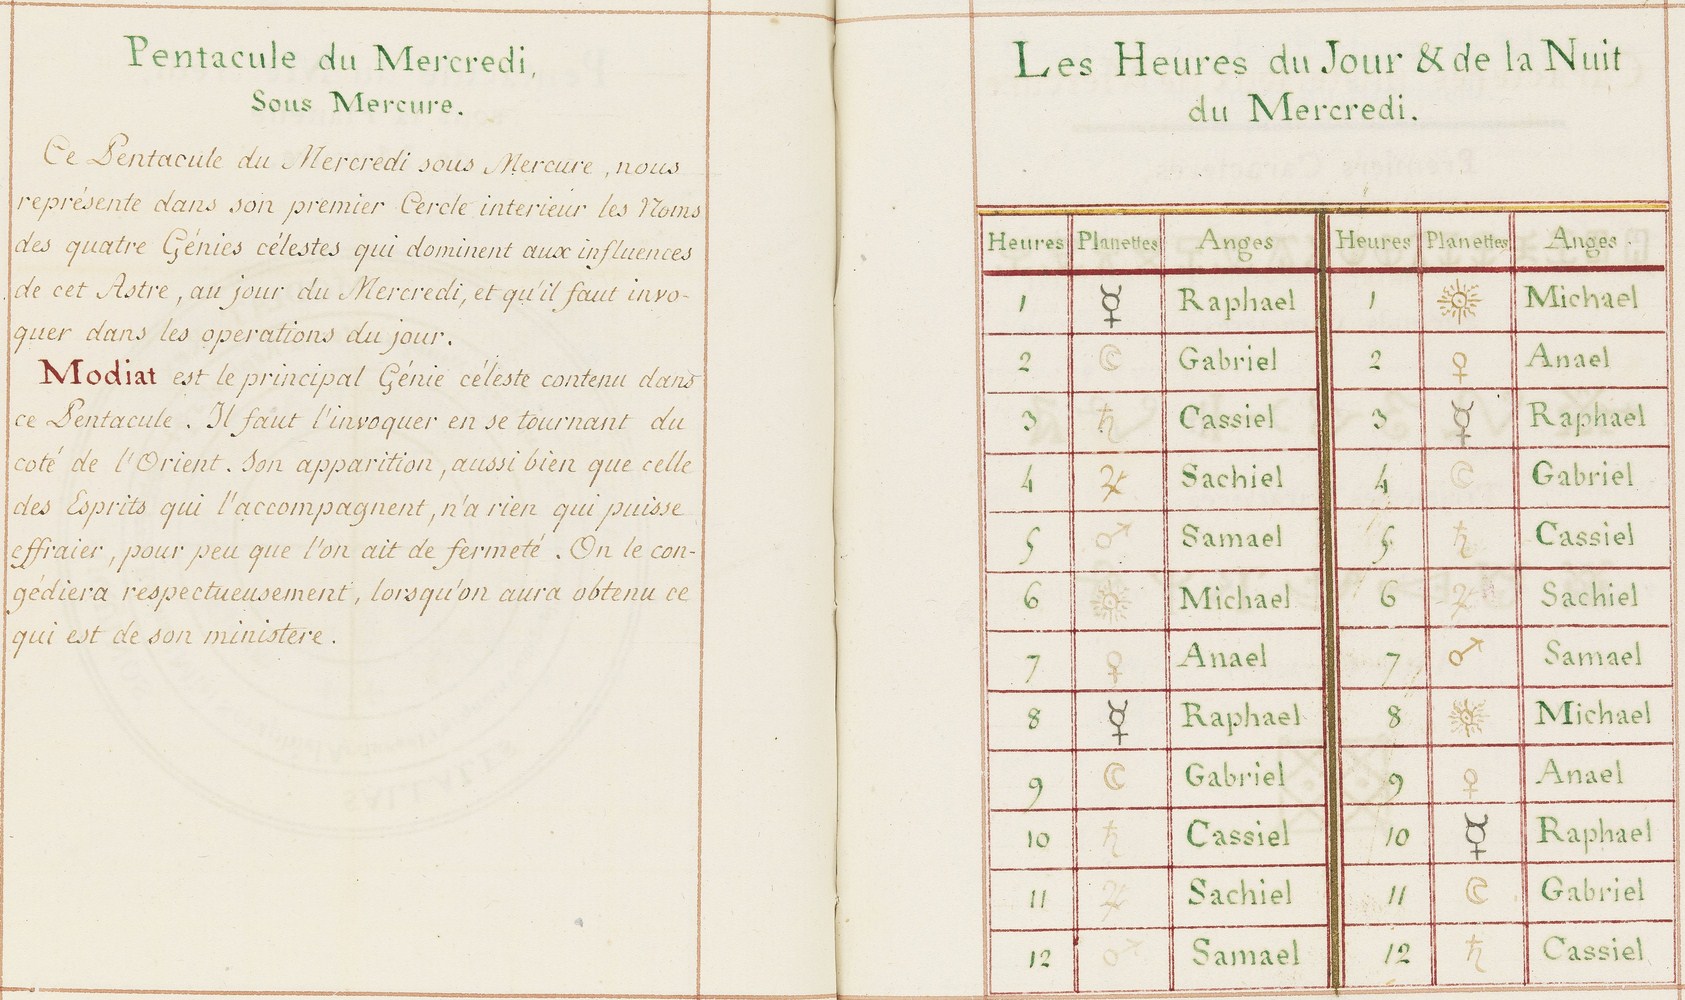 Pentacule du Mercredi,
Sous Mercure.
Ce Pentacule du Mercredi sous Mercure, nous
représente dans son premier Cercle interieur les Noms
des quatre Génies célestes qui dominent aux influences
de cet Astre, au jour du Mercredi, et qu'il faut invo-
quer dans les operations du jour.
Modiat est le principal Génie céleste contenu dans
ce Pentacule. Il faut l'invoquer en se tournant du
coté de l'Orient. Son apparition, aussi bien que celle
des Esprits qui l'accompagnent, n'a rien qui puisse
effraier, pour peu que l'on ait de fermeté. On le con-
gédiera respectueusement, lorsqu'on aura obtenu ce
qui est de son ministere.
Les Heures du Jour & de la Nuit
du Mercredi.
Heures Planettes Anges Heures Planettes Anges.
1 ☿ Raphael 1 ☉ Michael
2 ☾ Gabriel 2 ♀ Anael
3 ♄ Cassiel 3 ☿ Raphael
4 ♃ Sachiel 4 ☾ Gabriel
5 ♂ Samael 5 ♄ Cassiel
6 ☉ Michael 6 ♃ Sachiel
7 ♀ Anael 7 ♂ Samael
8 ☿ Raphael 8 ☉ Michael
9 ☾ Gabriel 9 ♀ Anael
10 ♄ Cassiel 10 ☿ Raphael
11 ♃ Sachiel 11 ☾ Gabriel
12 ♂ Samael 12 ♄ Cassiel